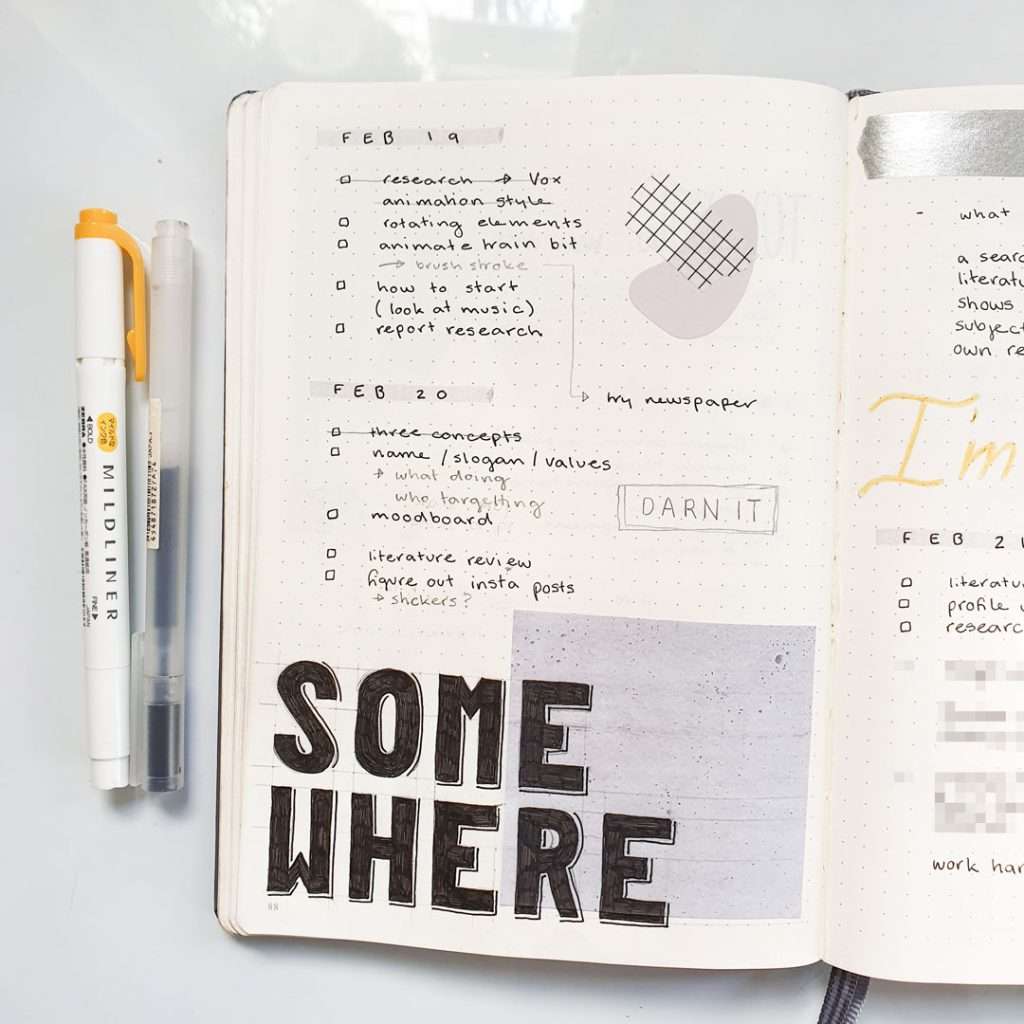 FEB 19
research → Vox
animation style
rotating elements
animate train bit
→ brush stroke
how to start
(look at music)
report research
FEB 20
try newspaper
three concepts
name / slogan / values
→ what doing
who targetting
DARN IT
moodboard
literature review
figure out insta posts
→ stickers?
SOME
WHERE
88
- what
a searc
literatu
shows
subject
own re
I'm
FEB 21
literatu
profile
research
work har
◄ BOLD
ZEBRA
MILDLINER
FINE ►
JAPAN